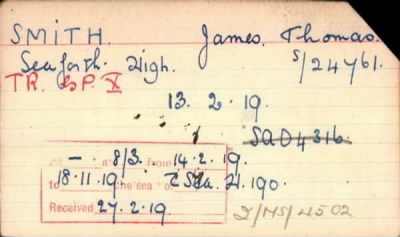 SMITH. James. Thomas.
Seaforth. High. S/24761.
TR. GP. X
13. 2. 19.
SQD4316.
- at 8/3. from 14.2.19.
to 18.11.19 the sea 21.190.
Received 27.2.19. I/MS/4502